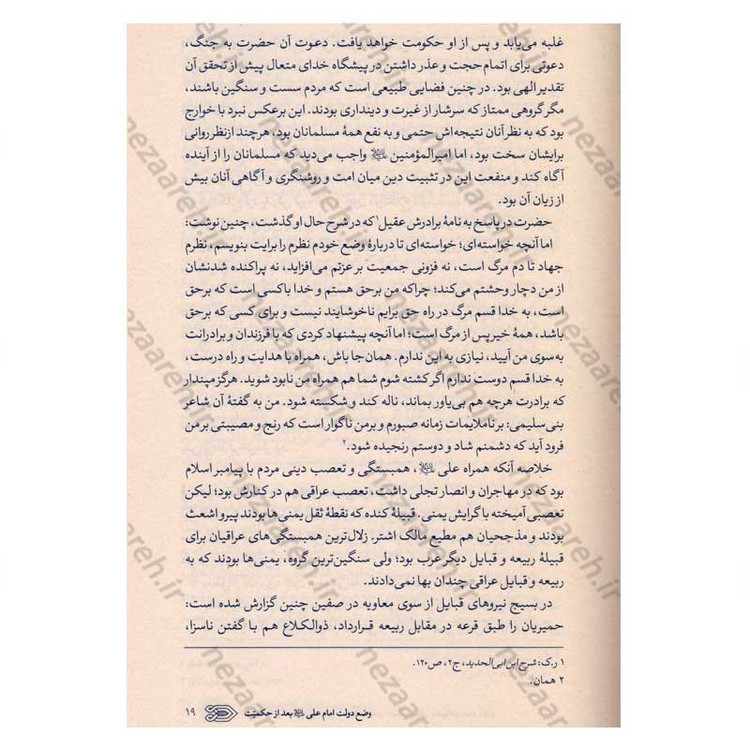 غلبه می‌یابد و پس از او حکومت خواهد یافت. دعوت آن حضرت به جنگ،
دعوتی برای اتمام حجت و عذر داشتن در پیشگاه خدای متعال پیش از تحقق آن
تقدیر الهی بود. در چنین فضایی طبیعی است که مردم سست و سنگین باشند،
مگر گروهی ممتاز که سرشار از غیرت و دینداری بودند. این برعکس نبرد با خوارج
بود که به نظر آنان نتیجه‌اش حتمی و به نفع همهٔ مسلمانان بود، هرچند از نظر روانی
برایشان سخت بود، اما امیرالمؤمنین ﷷ واجب می‌دید که مسلمانان را از آینده
آگاه کند و منفعت این در تثبیت دین میان امت و روشنگری و آگاهی آنان بیش
از زیان آن بود.
حضرت در پاسخ به نامهٔ برادرش عقیل¹ که در شرح حال او گذشت، چنین نوشت:
اما آنچه خواسته‌ای؛ خواسته‌ای تا دربارهٔ وضع خودم نظرم را برایت بنویسم، نظرم
جهاد تا دم مرگ است، نه فزونی جمعیت بر عزتم می‌افزاید، نه پراکنده شدنشان
از من دچار وحشتم می‌کند؛ چراکه من برحق هستم و خدا با کسی است که برحق
است، به خدا قسم مرگ در راه حق برایم ناخوشایند نیست و برای کسی که برحق
باشد، همهٔ خیر پس از مرگ است؛ اما آنچه پیشنهاد کردی که با فرزندان و برادرانت
به سوی من آیید، نیازی به این ندارم. همان جا باش، همراه با هدایت و راه درست،
به خدا قسم دوست ندارم اگر کشته شوم شما هم همراه من نابود شوید. هرگز مپندار
که برادرت هرچه هم بی‌یاور بماند، ناله کند و شکسته شود. من به گفتهٔ آن شاعر
بنی‌سلیمی: بر ناملایمات زمانه صبورم و بر من ناگوار است که رنج و مصیبتی بر من
فرود آید که دشمنم شاد و دوستم رنجیده شود.²
خلاصه آنکه همراه علی ﷷ، همبستگی و تعصب دینی مردم با پیامبر اسلام
بود که در مهاجران و انصار تجلی داشت، تعصب عراقی هم در کنارش بود؛ لیکن
تعصبی آمیخته با گرایش یمنی. قبیلهٔ کنده که نقطهٔ ثقل یمنی‌ها بودند پیرو اشعث
بودند و مذحجیان هم مطیع مالک اشتر. زلال‌ترین همبستگی‌های عراقیان برای
قبیلهٔ ربیعه و قبایل دیگر عرب بود؛ ولی سنگین‌ترین گروه، یمنی‌ها بودند که به
ربیعه و قبایل عراقی چندان بها نمی‌دادند.
در بسیج نیروهای قبایل از سوی معاویه در صفین چنین گزارش شده است:
حمیریان را طبق قرعه در مقابل ربیعه قرارداد، ذوالکلاع هم با گفتن ناسزا،
۱ ر.ک: شرح ابن ابی‌الحدید، ج۲، ص۱۲۰.
۲ همان.
وضع دولت امام علی ﷷ بعد از حکمیت ۱۹
nezaareh.ir